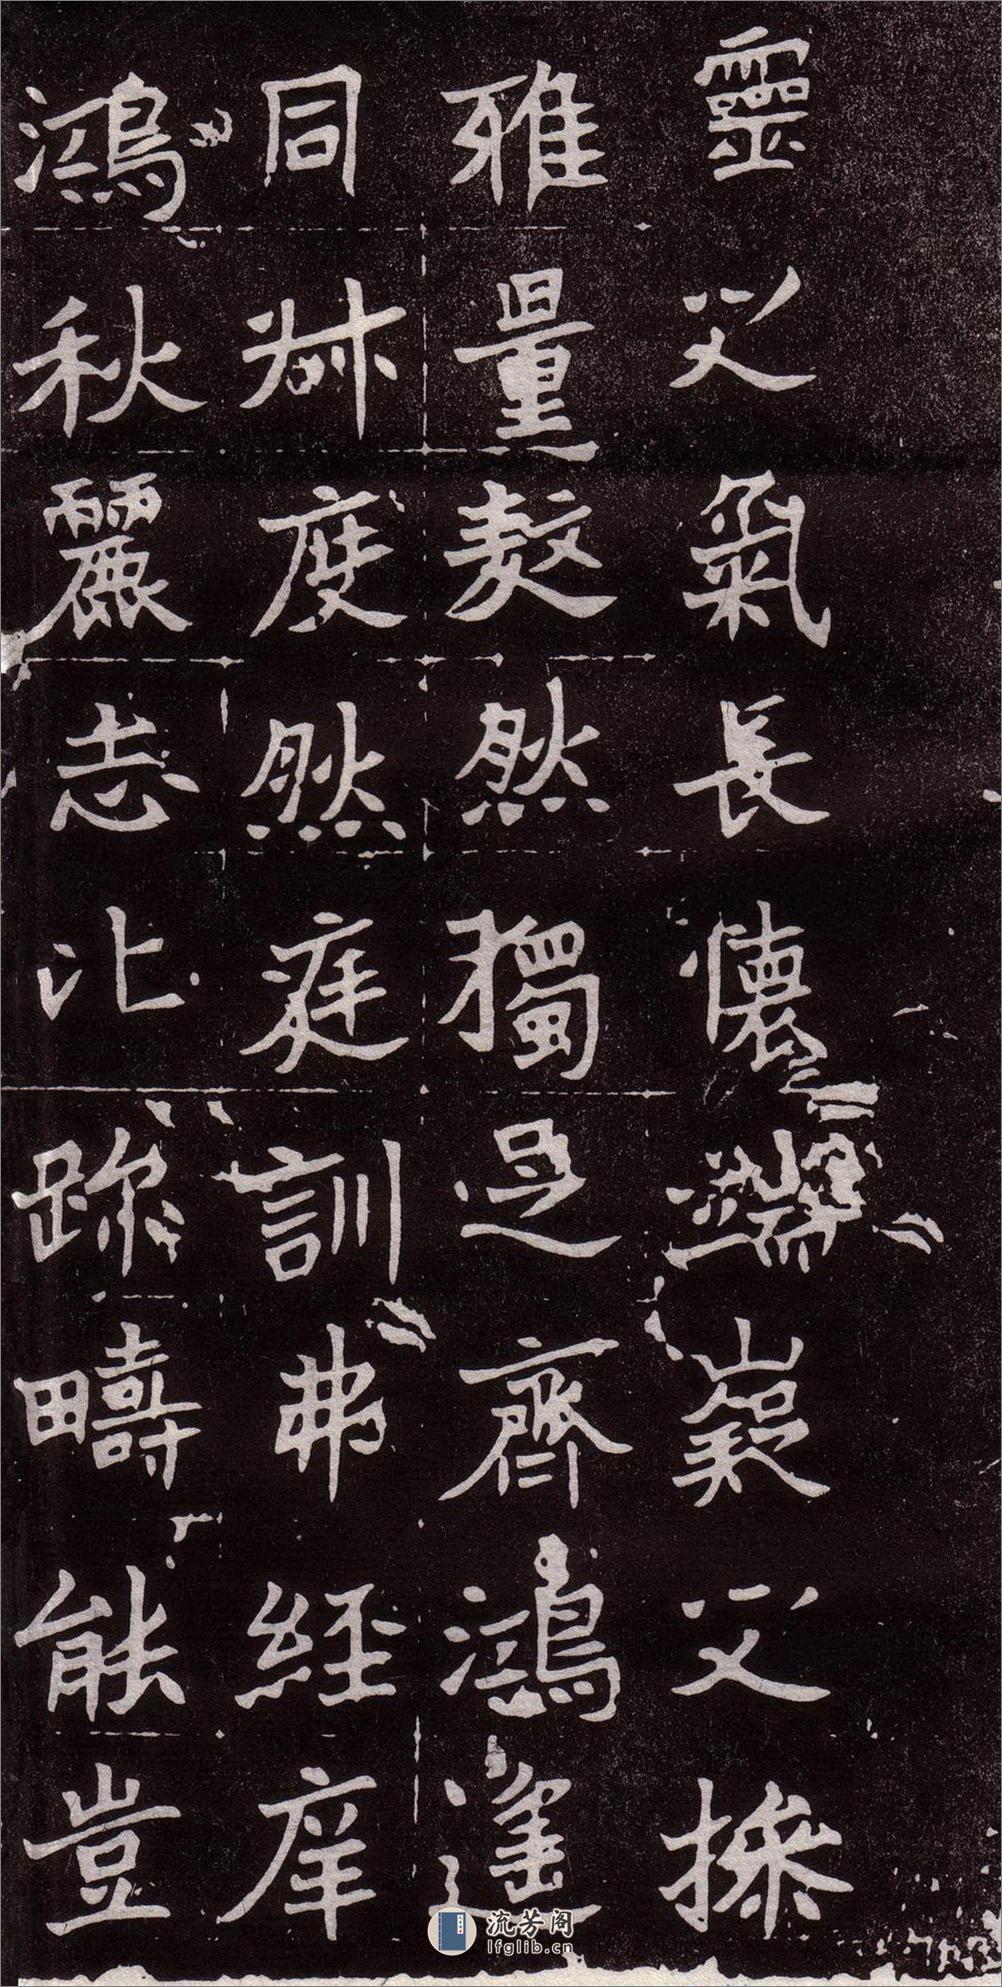 靈之氣長懷瑞嶷之操
雅量然獨是齊鴻
同叔度然庭訓弗經庠
鴻秋麗志比跡疇能豈
流芳阁
lfglib.cn